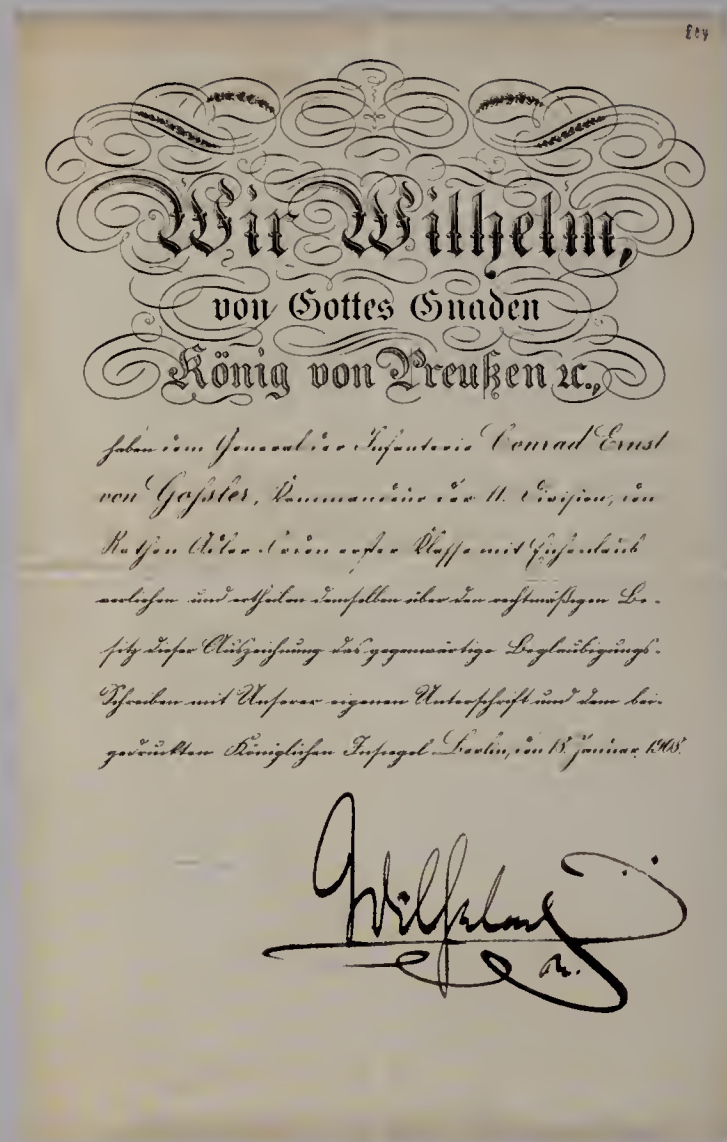 Wir Wilhelm,
von Gottes Gnaden
König von Preußen ꝛc.,
haben dem General der Infanterie Conrad Ernst
von Goßler, Kommandeur der 11. Division, den
Rothen Adler-Orden erster Klasse mit Eichenlaub
verliehen und ertheilen demselben über den rechtmäßigen Be-
sitz dieser Auszeichnung das gegenwärtige Beglaubigungs-
Schreiben mit Unserer eigenen Unterschrift und dem bei-
gedruckten Königlichen Insiegel. Berlin, den 18. Januar 1903.
Wilhelm
R.